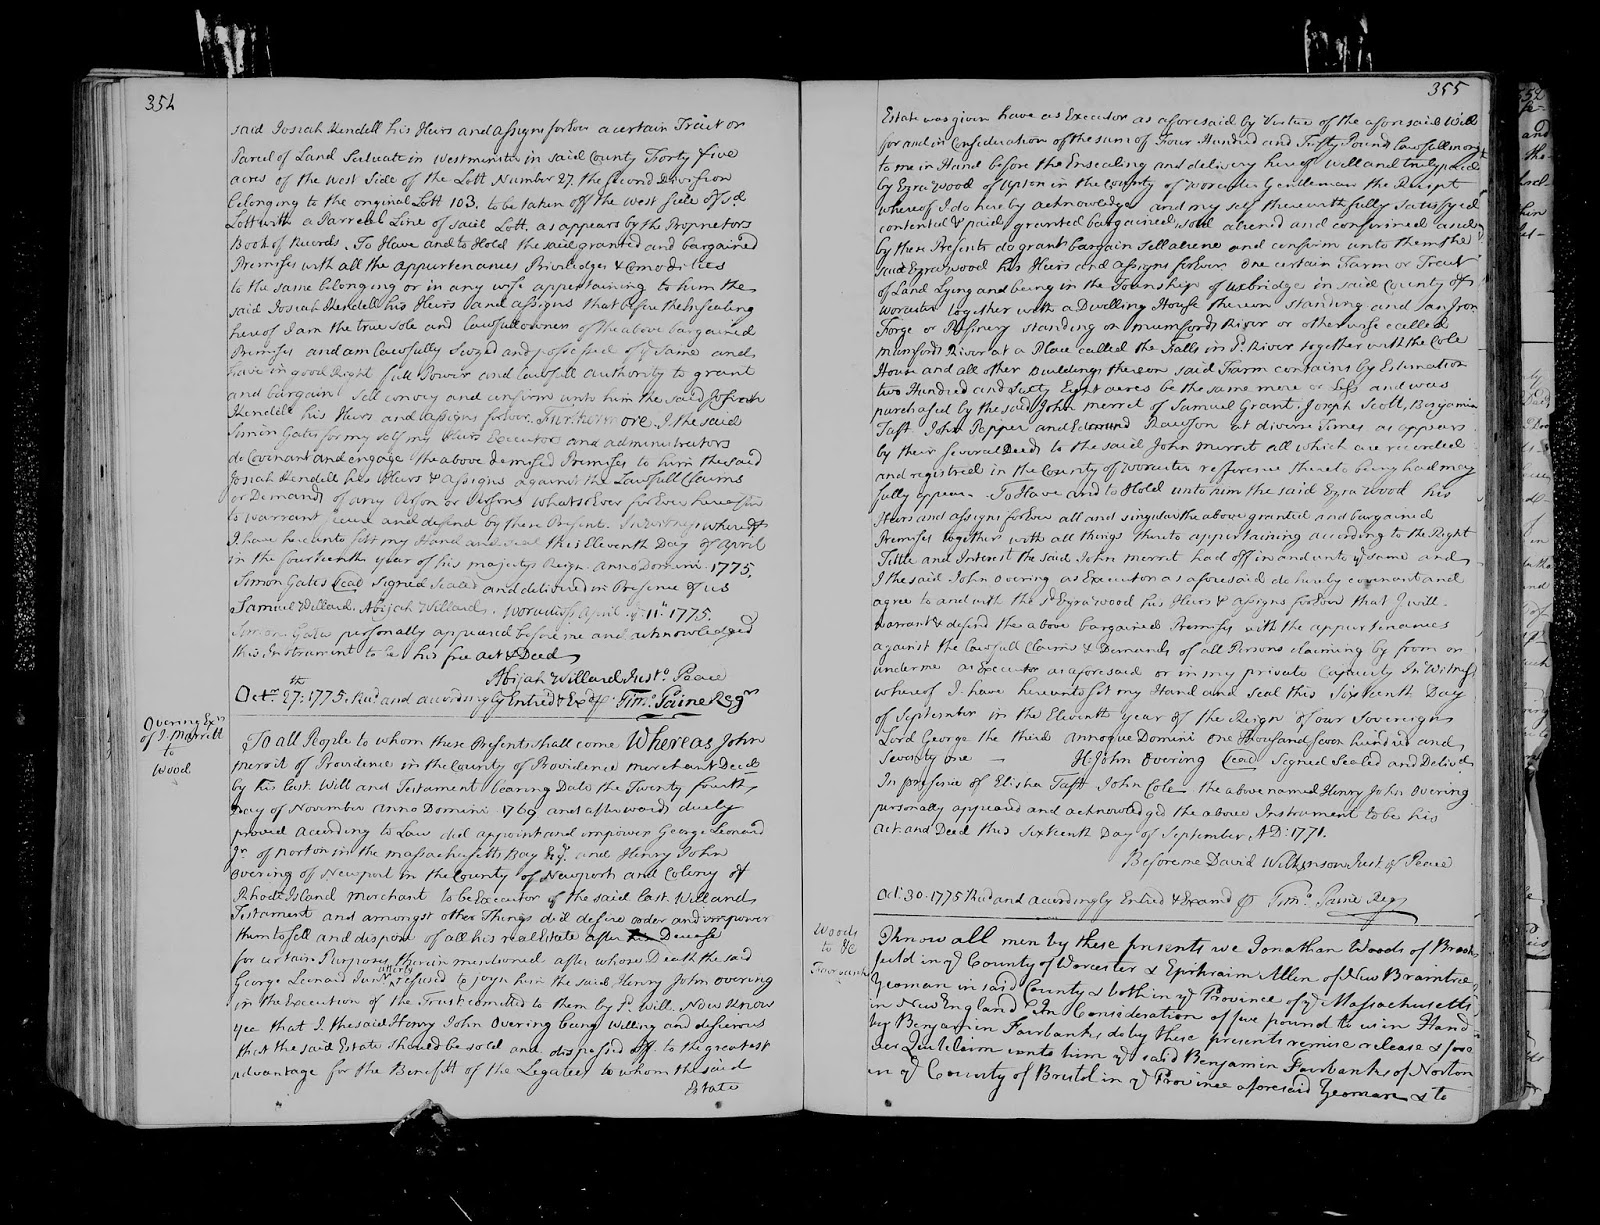 354
said Josiah Kendell his Heirs and assigns forEver a certain Tract or
Parcel of Land Scituate in Westminster in said County Forty five
acres of the West Side of the Lott Number 27. the second Division
belonging to the original Lott 103. to be taken off the West side of sd
Lott with a Parrell Line of said Lott. as appears by the Proprietors
Book of Records. To Have and to Hold the said granted and bargained
Premises with all the appurtenances Priviledges & Comodities
to the same belonging or in any wise appertaining to him the
said Josiah Kendell his Heirs and assigns that before the Ensealing
hereof I am the true sole and Lawfull owner of the above bargained
Premises and am Lawfully Seized and possessed of ye same and
have in good Right full Power and Lawfull authority to grant
and bargain Sell convey and confirm unto him the said Josiah
Kendell his Heirs and assigns forEver. Furthermore. I the said
Simon Gates for my self my Heirs Executors and administrators
do Covenant and engage the above demised Premises to him the said
Josiah Kendell his Heirs & assigns against the Lawfull Claims
or Demands of any Person or Persons whatsoEver forEver hereafter
to warrant secure and defend by these Present. In witness whereof
I have hereunto sett my Hand and seal this Eleventh Day of April
in the fourteenth year of his majestys Reign annodomini. 1775.
Simon Gates (seal) Signed Sealed and delivered in Presence of us
Samuel Willard. Abijah Willard. Worcester ss. April ye 11th 1775.
Simon Gates personally appeared before me and acknowledged
this Instrument to be his free act & Deed
Abijah Willard Just. Peace
Octr. 27th: 1775. Recd. and accordingly Entred & Exd p Timo. Paine Regr
Overing Exr
of J. Merritt
to
Wood
To all People to whom these Presents shall come Whereas John
Merrit of Providence in the County of Providence merchant Decd
by his Last Will and Testament bearing Date the Twenty fourth
Day of November Anno Domini 1769 and afterwards duely
proved according to Law did appoint and impower George Leonard
Jr. of Norton in the Massachusetts Bay Esqr. and Henry John
Overing of Newport in the County of Newport and Colony of
Rhode Island merchant to be Executors of the said Last Will and
Testament and amongst other Things did desire order and impower
them to sell and dispose of all his real Estate after Decease
for certain Purposes therein mentioned after whose Death the said
George Leonard Junr. utterly refused to joyn him the said Henry John Overing
in the Execution of the Trust comitted to them by sd. Will. Now Know
yee that I the said Henry John Overing being willing and desirous
that the said Estate should be sold and dispossed off to the greatest
advantage for the Benefitt of the Legatees to whom the said
Estate
355
Estate was given have as Executor as aforesaid by Virtue of the aforesaid Will
for and in Consideration of the sum of Four Hundred and Fifty Pound Lawfull mony
to me in Hand before the Ensealing and delivery hereof well and truly paid
by Ezra Wood of Upton in the County of Worcester Gentleman the Receipt
whereof I do hereby acknowledge and my self therewith fully satisfyed
contented & paid granted bargained sold aliened and confirmed and
by these Presents do grant bargain sell aliene and confirm unto them the
said Ezra Wood his Heirs and assigns forEver One certain Farm or Tract
of Land Lying and being in the Township of Uxbridge in said County of
Worcester together with a Dwelling House thereon standing and an Iron
Forge or Refinery standing on Mumfords River or otherwise called
Mumfords River at a Place called the Falls in sd. River together with the Cole
House and all other Buildings thereon said Farm contains by Estimation
two Hundred and Sixty Eight acres be the same more or less and was
purchased by the said John Merret of Samuel Grant. Joseph Scott, Benjamin
Taft John Pepper and Edmund Rawson at diverse Times as appears
by their several Deeds to the said John Merrit all which are recorded
and registred in the County of Worcester refference thereto being had may
fully appear. To Have and to Hold unto him the said Ezra Wood his
Heirs and assigns forEver all and singular the above granted and bargained
Premises together with all things thereto appertaining according to the Right
Title and Interest the said John Merrit had off in and unto ye same and
I the said John Overing as Executor as aforesaid do hereby covenant and
agree to and with the sd Ezra Wood his Heirs & assigns forEver that I will
warrant & defend the above bargained Premises with the appurtenances
against the Lawfull Claims & Demands of all Persons claiming by from or
under me as Executor as aforesaid or in my private Capacity In Witness
whereof I have hereunto set my Hand and Seal this Sixteenth Day
of September in the Eleventh year of the Reign of our Sovereign
Lord George the third Annoque Domini One thousand seven hundred and
Seventy one — H: John Overing (seal) Signed Sealed and Delivd
In presence of Elisha Taft John Cole the above named Henry John Overing
personally appeared and acknowledged the above Instrument to be his
act and Deed this Sixteenth Day of September, A.D: 1771.
Before me David Wilkinson Just of Peace
Oct. 30. 1775 Recd and accordingly Entred & Examd p Timo. Paine Regr
Woods
to &c
Fairbanks
Know all men by these presents we Jonathan Woods of Brook
field in ye County of Worcester & Ephraim Allen of New Braintree
Yeoman in said County & both in ye Province of ye Massachusetts
in New England In Consideration of five pound to us in Hand
by Benjamin Fairbanks do by these presents remise release & fore
ver Quitclaim unto him ye said Benjamin Fairbanks of Norton
in ye County of Bristol in ye Province aforesaid Yeoman & to